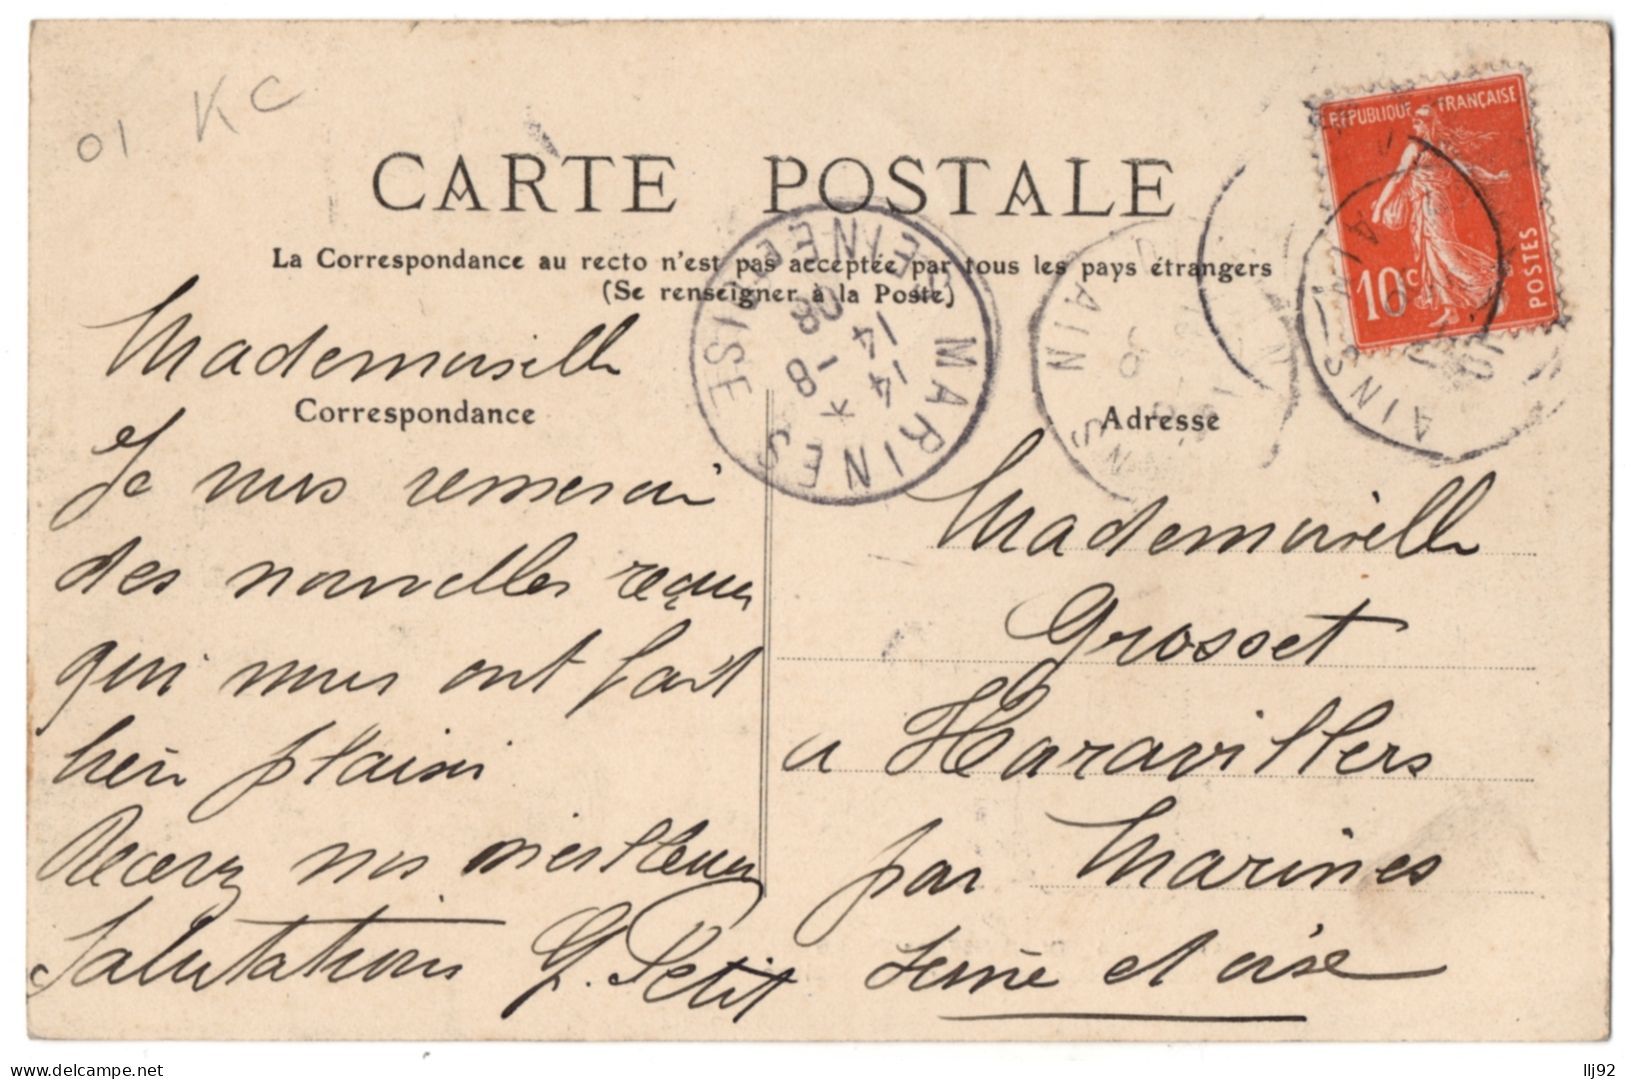 01 KC
CARTE POSTALE
La Correspondance au recto n'est pas acceptée par tous les pays étrangers
(Se renseigner à la Poste)
RÉPUBLIQUE FRANÇAISE
10c
POSTES
MARINES
SEINE ET OISE
14
14 -8
08
AIN
AIN
Correspondance
Adresse
Mademoiselle
Je vous remerci
des nouvelles reçues
qui nous ont fait
bien plaisir
Recevez nos meilleures
Salutations G. Petit
Mademoiselle
Grosset
a Haravillers
par Marines
Seine et oise
llj92